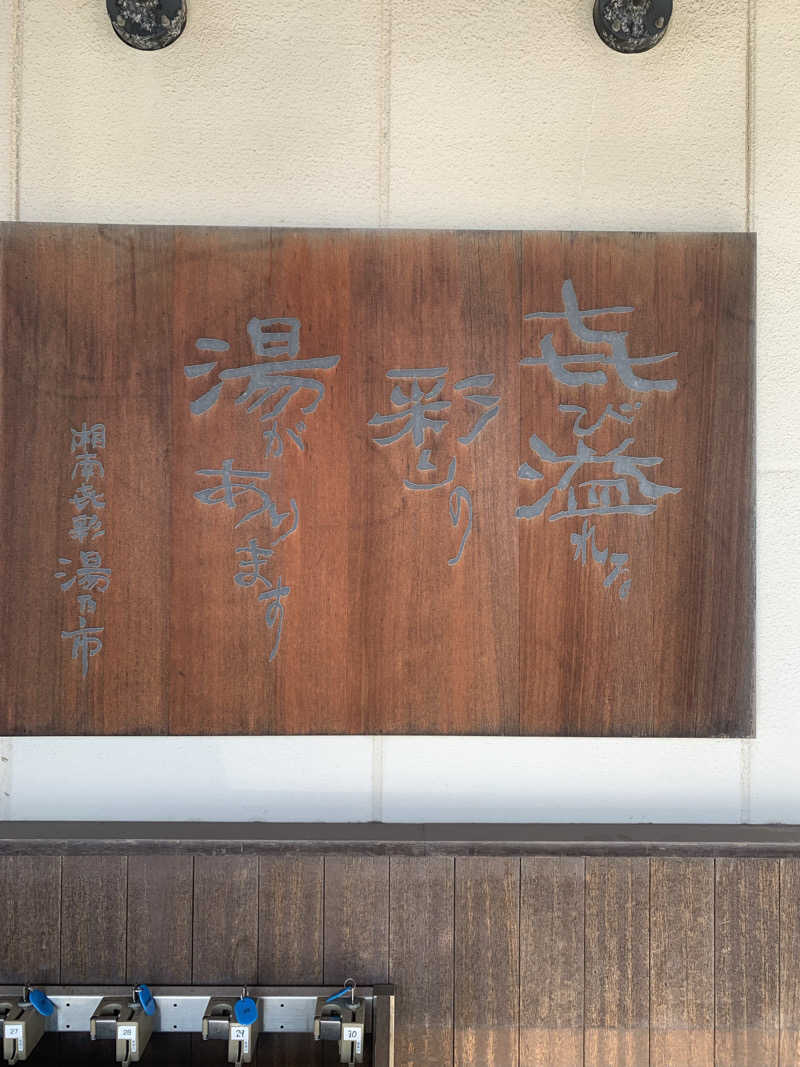 㐂び溢れる
彩りの
湯があります
湘南㐂彩
湯乃市
27
28
29
30